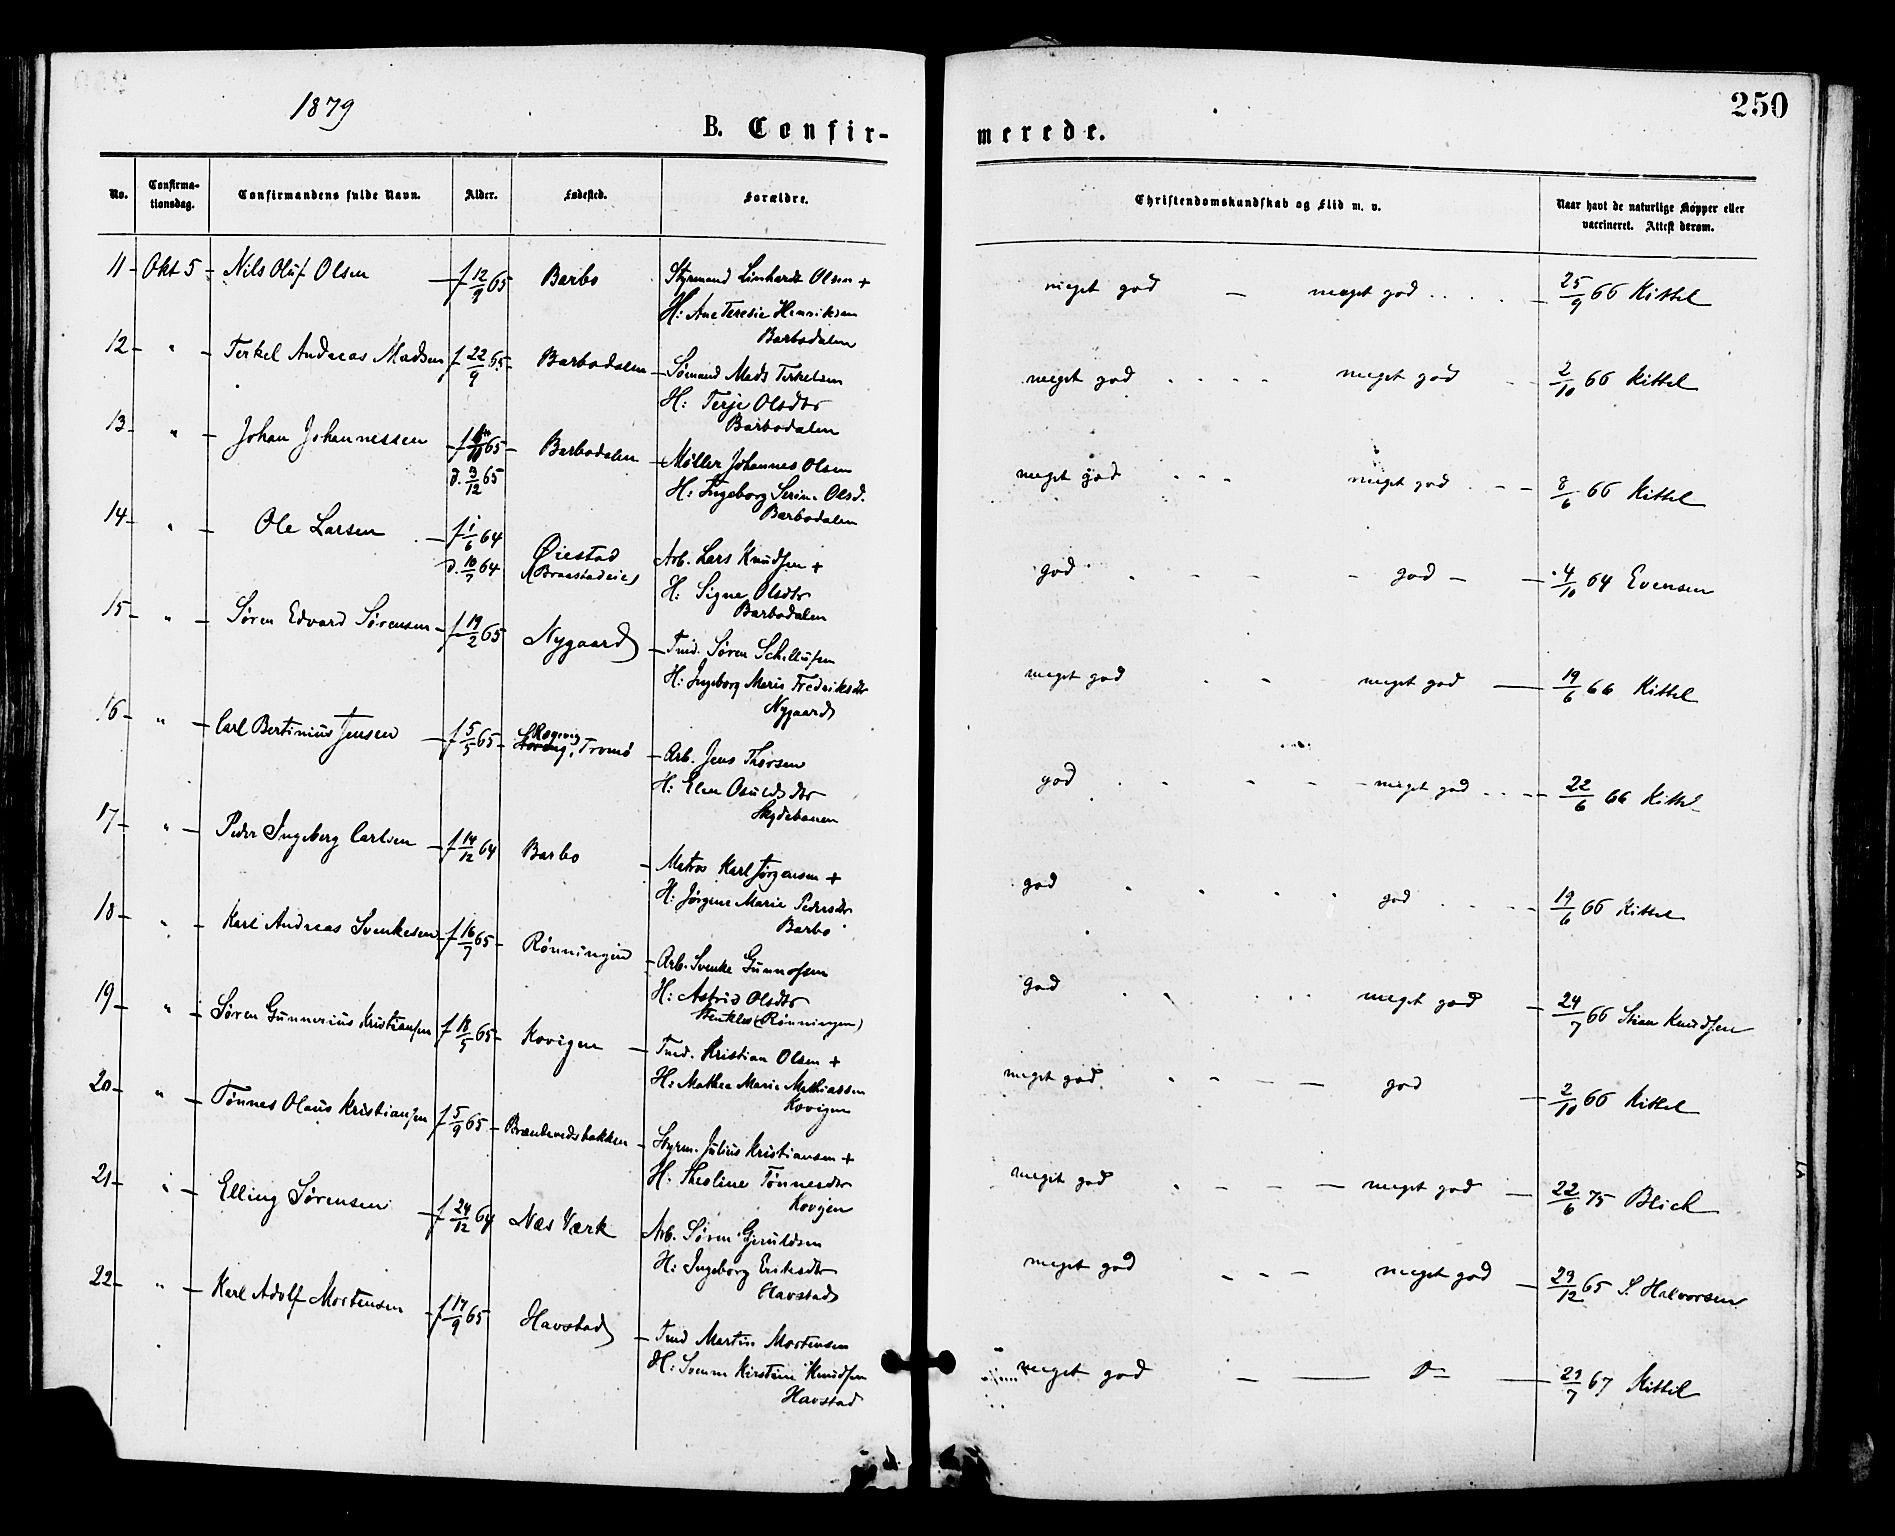 1879
250
B. Confir-
merede.
No.
Confirma-
tionsdag.
Confirmandens fulde Navn.
Alder.
Fødested.
Forældre.
Christendomskundskab og Flid m. v.
Naar havt de naturlige Kopper eller
vaccineret. Attest derom.
11 - Okt 5 - Nils Oluf Olsen - f 12/9 65 Barbo Styrmand Linhardt Olsen + meget god - meget god - 25/9 66 Kittel
H: Ane Teresie Henriksen
Barbodalen
12 - " - Terkel Andreas Madsen f 22/9 65 - Barbodalen - Sømand Mads Terkelsen meget god - - - - meget god - - 2/10 66 Kittel
H: Terje Olsdtr
Barbodalen
13 - " - Johan Johannessen - f 65 - Barbodalen - Møller Johannes Olsen meget god - - - meget god - - - 8/6 66 Kittel
d. 3/12 65
H: Ingeborg Serine Olsd.
Barbodalen
14 - " - Ole Larsen - f 1/6 64 Øiestad Arb. Lars Knudsen + god - - - - god - - 4/10 64 Evensen
d. 10/7 64
H: Signe Olsdtr
Barbodalen
15 - " - Søren Edvard Sørensen - f 19/2 65 Nygaard - Tmd. Søren meget god - - meget god - 19/6 66 Kittel
H: Ingeborg Marie Fredriksdtr
Nygaard
16 - " - Carl Bertinius Jensen - f 5/5 65 - Tromø - Arb. Jens Thorsen god - - - - - meget god - - - - 22/6 66 Kittel
H: Elen Osulds dtr
Skydebanen
17 - " - Peder Ingeberg Carlsen - f 14/12 64 Barbo - Matros Karl Jørgensen + god - - - - god - - - - 19/6 66 Kittel
H: Jørgine Marie Pedersdtr
Barbo
18 - " - Karl Andreas Svenkesen - f 16/7 65 - Rønningen - Arb. Svenke Gunnofsen god - - - - meget god - 24/7 66 Stian Knudsen
H: Astrid Olsdtr
(Rønningen)
19 - " - Søren Gunnerius Kristiansen f 18/5 65 - Kovigen - Tmd. Kristian Olsen + meget god. - - - - god - 2/10 66 Kittel
H: Mathea Marie Mathiassen
Kovigen
20 - " - Tønnes Olaus Kristiansen f 5/9 65 - Brænkevedsbakken - Styrm. Julius Kristiansen + meget god - - - - meget god - 22/6 75 Blich
H: Theoline Tønnesdtr
Kovigen
21 - " - Elling Sørensen - f 24/12 64 Næs Værk Arb. Søren Gjeruldsen meget god - - - meget god - 29/12 65 S. Halvorsen
H: Ingeborg Eriksdtr
Havstad
22 - " - Karl Adolf Mortensen - f 17/9 65 Havstad - Tmd Martin Mortensen meget god - - Do - 7 67 Kittel
H: Kirstine Knudsen
Havstad